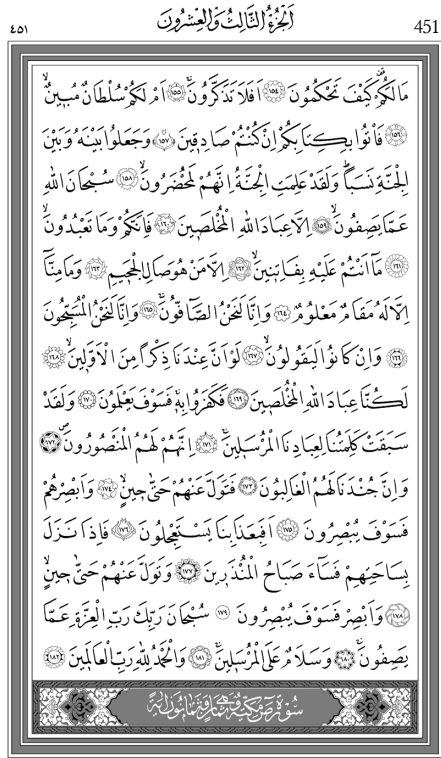 ٤٥١ اَلْجُزْءُ الثَّالِثُ وَالْعِشْرُونَ 451
مَالَكُمْ كَيْفَ تَحْكُمُونَ ﴿١٥٤﴾ اَفَلَا تَذَكَّرُونَ ﴿١٥٥﴾ اَمْ لَكُمْ سُلْطَانٌ مُبِينٌ
﴿١٥٦﴾ فَأْتُوا بِكِتَابِكُمْ اِنْ كُنْتُمْ صَادِقِينَ ﴿١٥٧﴾ وَجَعَلُوا بَيْنَهُ وَبَيْنَ
الْجِنَّةِ نَسَباً وَلَقَدْ عَلِمَتِ الْجِنَّةُ اِنَّهُمْ لَمُحْضَرُونَ ﴿١٥٨﴾ سُبْحَانَ اللهِ
عَمَّا يَصِفُونَ ﴿١٥٩﴾ اِلَّا عِبَادَ اللهِ الْمُخْلَصِينَ ﴿١٦٠﴾ فَاِنَّكُمْ وَمَا تَعْبُدُونَ
﴿١٦١﴾ مَا اَنْتُمْ عَلَيْهِ بِفَاتِنِينَ ﴿١٦٢﴾ اِلَّا مَنْ هُوَ صَالِ الْجَحِيمِ ﴿١٦٣﴾ وَمَا مِنَّا
اِلَّا لَهُ مَقَامٌ مَعْلُومٌ ﴿١٦٤﴾ وَاِنَّا لَنَحْنُ الصَّافُّونَ ﴿١٦٥﴾ وَاِنَّا لَنَحْنُ الْمُسَبِّحُونَ
﴿١٦٦﴾ وَاِنْ كَانُوا لَيَقُولُونَ ﴿١٦٧﴾ لَوْ اَنَّ عِنْدَنَا ذِكْراً مِنَ الْاَوَّلِينَ ﴿١٦٨﴾
لَكُنَّا عِبَادَ اللهِ الْمُخْلَصِينَ ﴿١٦٩﴾ فَكَفَرُوا بِهِ فَسَوْفَ يَعْلَمُونَ ﴿١٧٠﴾ وَلَقَدْ
سَبَقَتْ كَلِمَتُنَا لِعِبَادِنَا الْمُرْسَلِينَ ﴿١٧١﴾ اِنَّهُمْ لَهُمُ الْمَنْصُورُونَ ﴿١٧٢﴾
وَاِنَّ جُنْدَنَا لَهُمُ الْغَالِبُونَ ﴿١٧٣﴾ فَتَوَلَّ عَنْهُمْ حَتّٰى حِينٍ ﴿١٧٤﴾ وَاَبْصِرْهُمْ
فَسَوْفَ يُبْصِرُونَ ﴿١٧٥﴾ اَفَبِعَذَابِنَا يَسْتَعْجِلُونَ ﴿١٧٦﴾ فَاِذَا نَزَلَ
بِسَاحَتِهِمْ فَسَاءَ صَبَاحُ الْمُنْذَرِينَ ﴿١٧٧﴾ وَتَوَلَّ عَنْهُمْ حَتّٰى حِينٍ
﴿١٧٨﴾ وَاَبْصِرْ فَسَوْفَ يُبْصِرُونَ ﴿١٧٩﴾ سُبْحَانَ رَبِّكَ رَبِّ الْعِزَّةِ عَمَّا
يَصِفُونَ ﴿١٨٠﴾ وَسَلَامٌ عَلَى الْمُرْسَلِينَ ﴿١٨١﴾ وَالْحَمْدُ لِلّٰهِ رَبِّ الْعَالَمِينَ ﴿١٨٢﴾
سُورَةُ صٓ مَكِّيَّةٌ وَهِيَ ثَمَانٌ وَثَمَانُونَ اٰيَةً